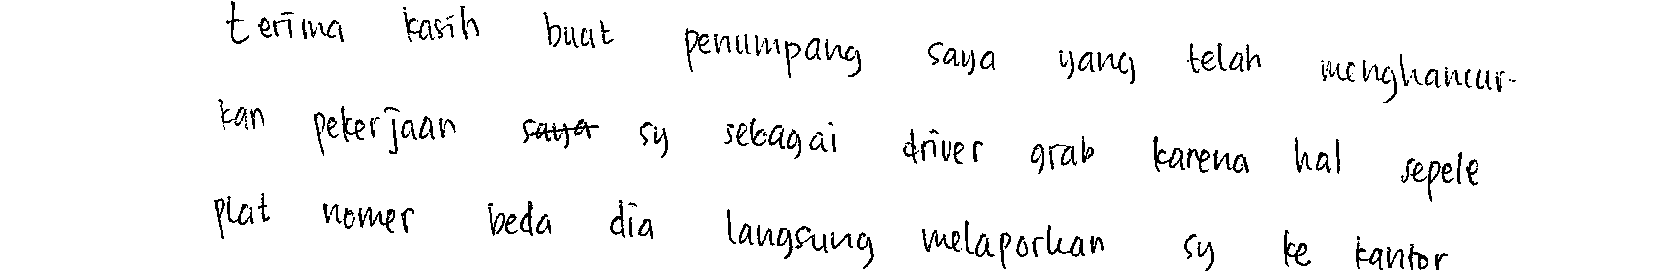 terima kasih buat penumpang saya yang telah menghancur-
kan pekerjaan sy sebagai driver grab karena hal sepele
plat nomer beda dia langsung melaporkan sy ke kantor